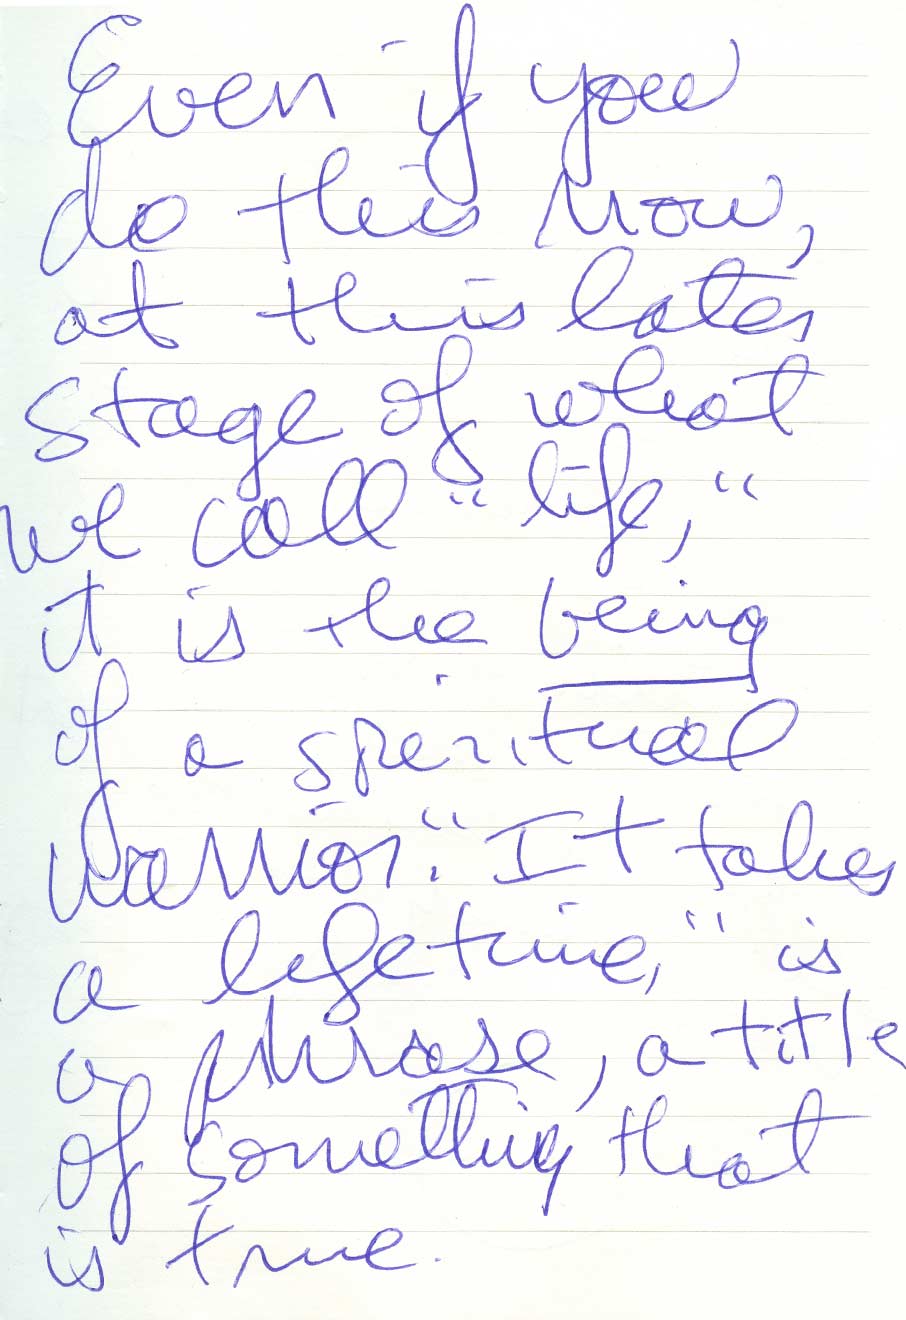 Even if you
do this now,
at this later
stage of what
we call "life,"
it is the being
of a spiritual
Warrior. "It takes
a lifetime," is
a phrase, a title
of something that
is true.